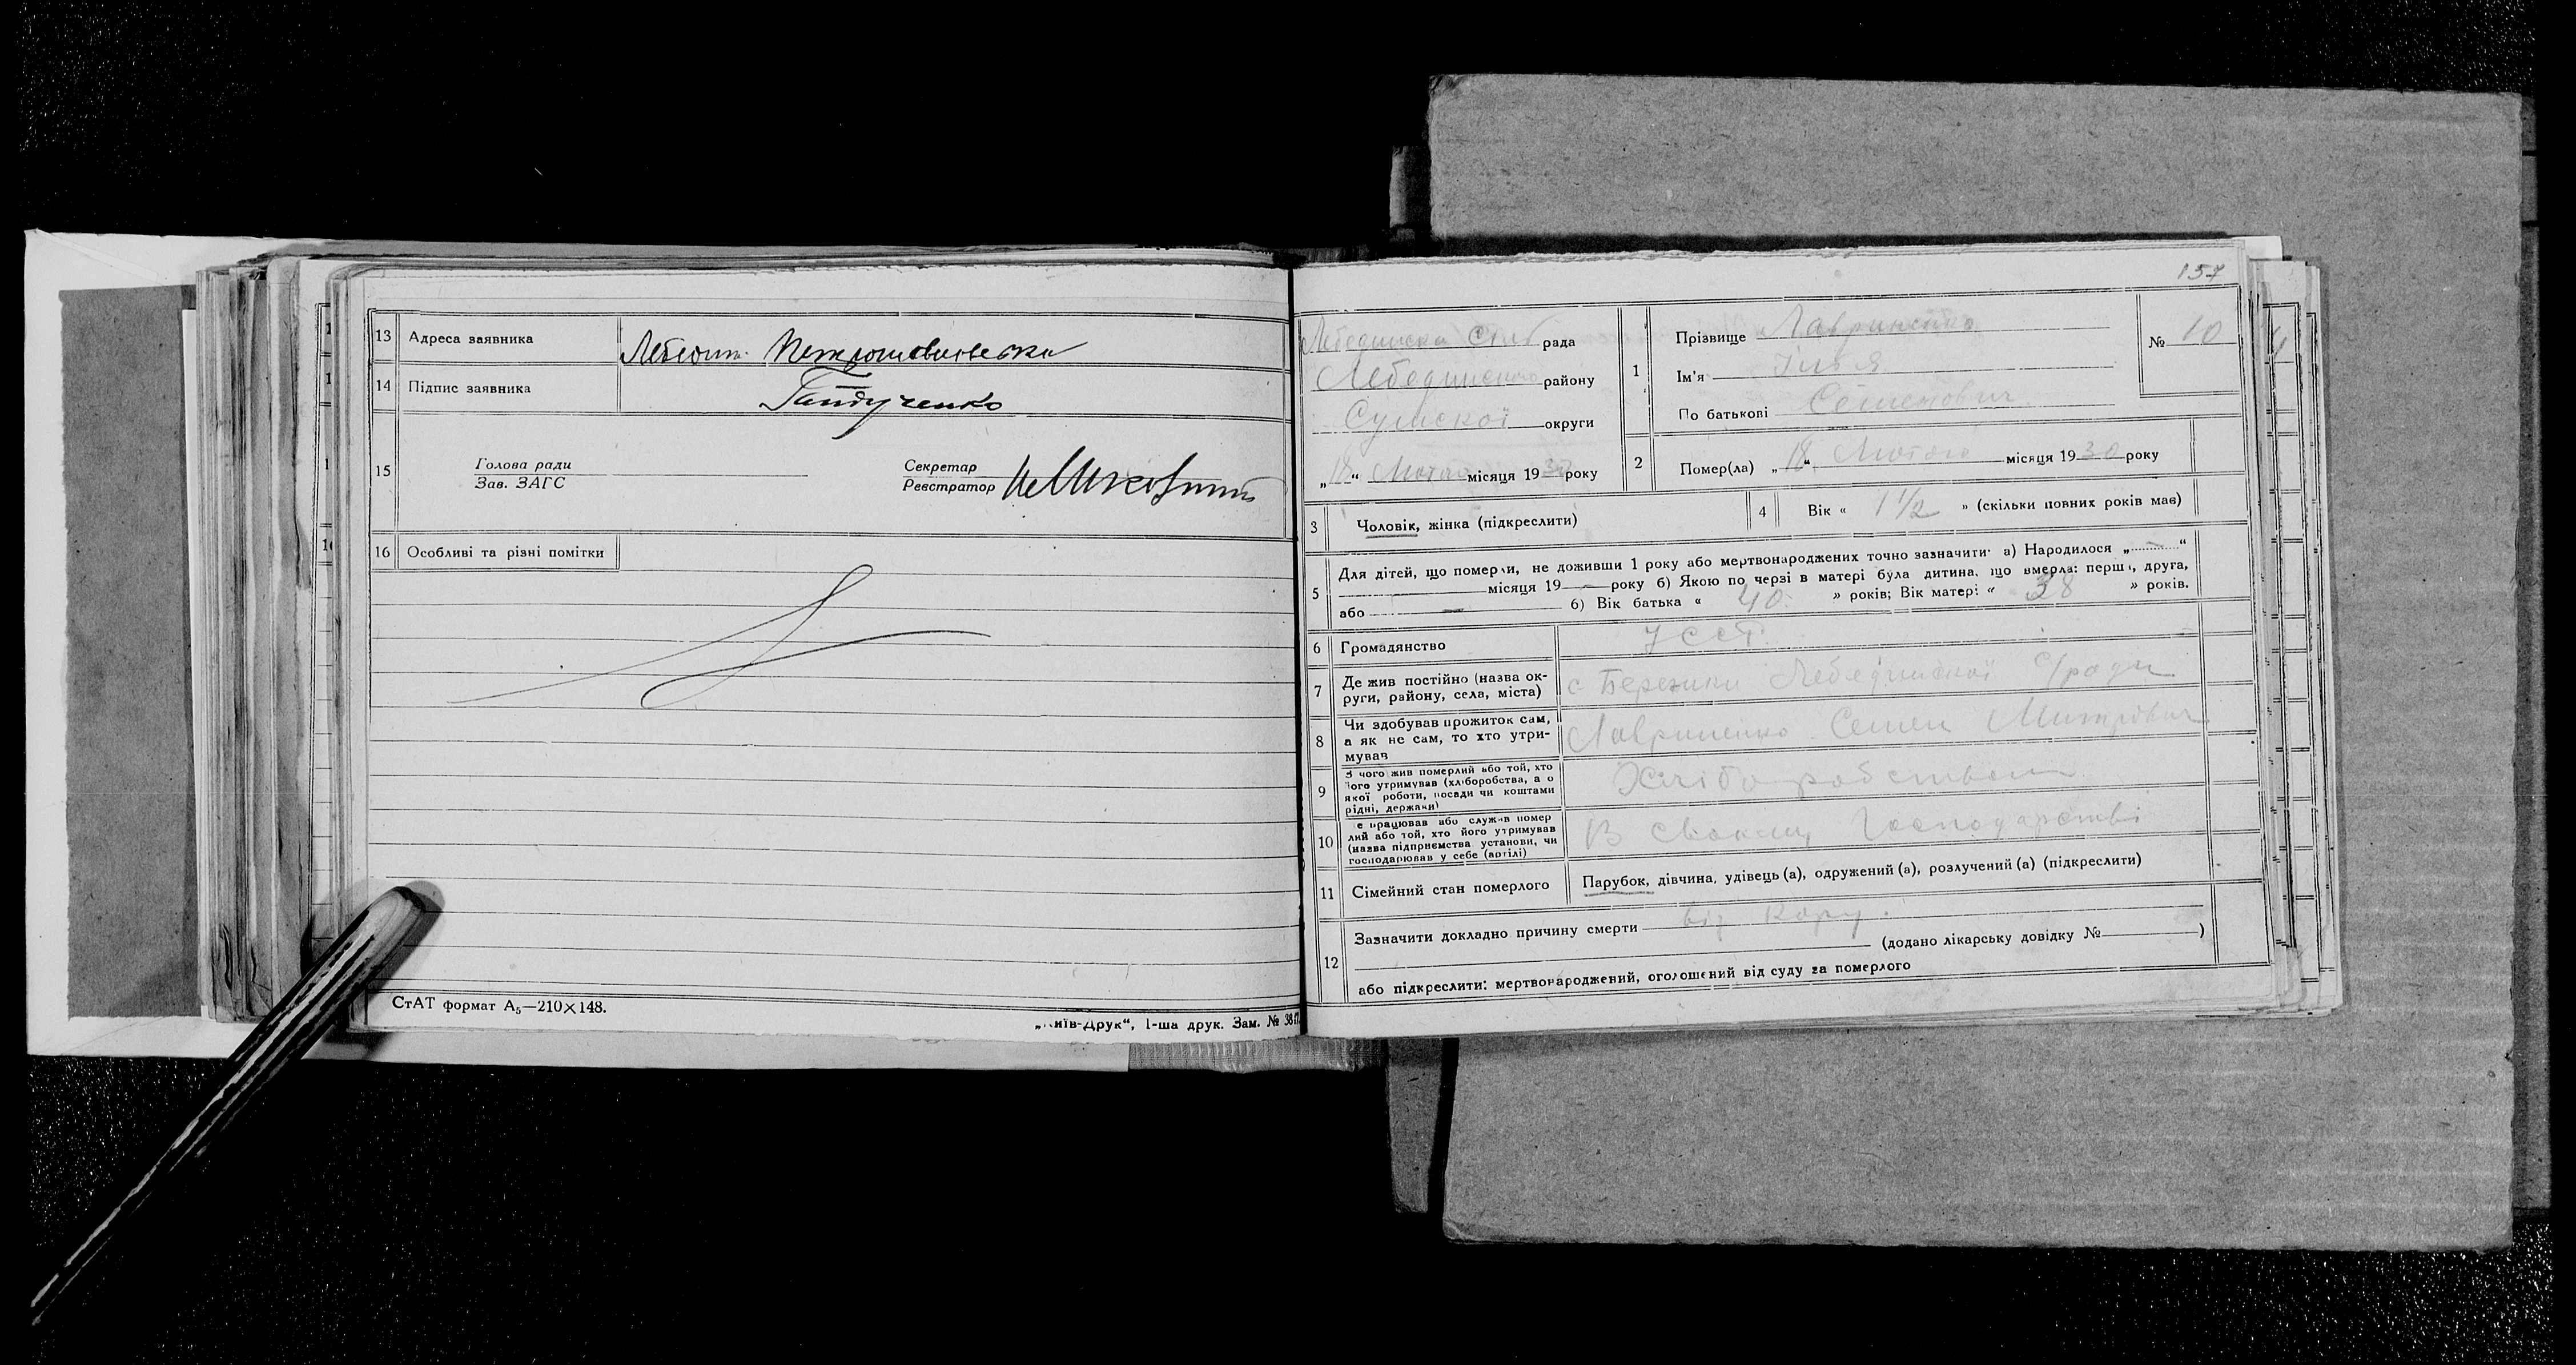 13 Адреса заявника Лебедин.
14 Підпис заявника
15 Голова ради
Зав. ЗАГС
Секретар
Реєстратор
16 Особливі та різні помітки
СтАТ формат А₅—210×148.
„Київ-Друк“, 1-ша друк. Зам. №
157
Лебединська Сіль рада
Лебединського району
Сумської округи
„18“ Лютого місяця 1930 року
1 Прізвище Лавриненко
Ім'я Ілья
По батькові Семенович
№ 10
2 Помер(ла) „18“ Лютого місяця 1930 року
3 Чоловік, жінка (підкреслити)
4 Вік « 1 1/2 » (скільки повних років мав)
5 Для дітей, що померли, не доживши 1 року або мертвонароджених точно зазначити: а) Народилося „ — “
місяця 19 — року б) Якою по черзі в матері була дитина, що вмерла: перша, друга,
або — б) Вік батька « 40 » років; Вік матері « 38 » років.
6 Громадянство УССР
7 Де жив постійно (назва ок-
руги, району, села, міста) с Бережки Лебединської с/ради
8 Чи здобував прожиток сам,
а як не сам, то хто утри-
мував Лавриненко Семен Митрович
9 З чого жив померлий або той, хто
його утримував (хліборобства, а о
якої роботи, посади чи коштами
рідні, держави) Хліборобством
10 Де працював або служив помер
лий або той, хто його утримував
(назва підприємства установи, чи
господарював у себе (артілі) В своєму Господарстві
11 Сімейний стан померлого Парубок, дівчина, удівець (а), одружений (а), розлучений (а) (підкреслити)
12 Зазначити докладно причину смерти від Кору.
(додано лікарську довідку № )
або підкреслити: мертвонароджений, оголошений від суду за померлого